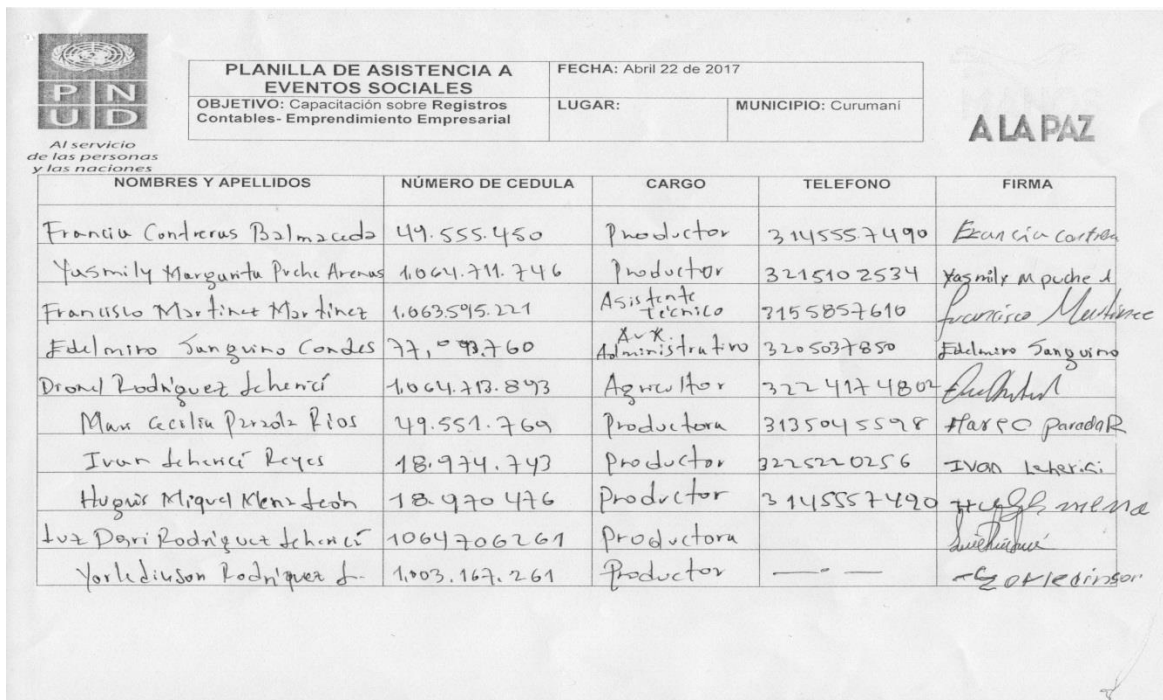 P N
U D
Al servicio
de las personas
y las naciones
PLANILLA DE ASISTENCIA A
EVENTOS SOCIALES
FECHA: Abril 22 de 2017
OBJETIVO: Capacitación sobre Registros
Contables- Emprendimiento Empresarial
LUGAR: MUNICIPIO: Curumaní
MANOS
A LA PAZ
NOMBRES Y APELLIDOS NÚMERO DE CEDULA CARGO TELEFONO FIRMA
Francia Contreras Balmaceda 49.555.450 Productor 3145557490 Francia Contren
Yasmily Margarita Puche Arenas 1.064.711.746 Productor 3215102534 Yasmily M puche A
Francisco Martinez Martinez 1.063.595.221 Asistente Técnico 3155857610 Francisco Martinez
Edelmiro Sanguino Condes 77,093.760 Aux. Administrativo 3205037850 Edelmiro Sanguino
Rodríguez 1.064.713.893 Agricultor 3224174802
Cecilia Ríos 49.551.769 Productora 3135045598 Parada R
Ivan Reyes 18.974.743 Productor 3225220256 Ivan
Miguel León 18.970476 Productor 3145557490 mena
Luz Rodríguez 1064706261 Productora
Rodríguez L. 1.003.167.261 Productor —·—